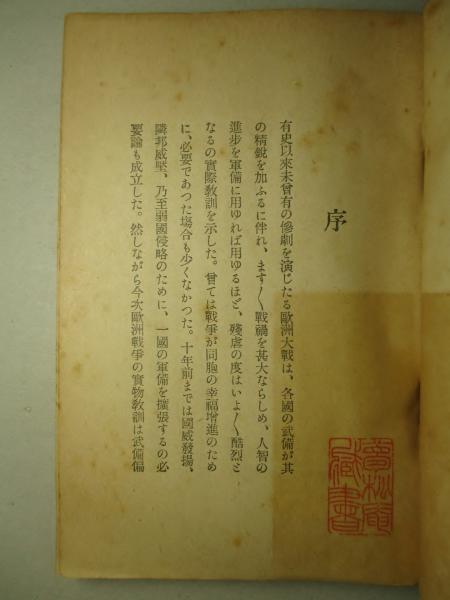 序
有史以來未曾有の慘劇を演じたる歐洲大戰は、各國の武備が其
の精鋭を加ふるに伴れ、ます〱戰禍を甚大ならしめ、人智の
進步を軍備に用ゆれば用ゆるほど、殘虐の度はいよ〱酷烈と
なるの實際敎訓を示した。曾ては戰爭が同胞の幸福增進のため
に、必要であつた場合も少くなかつた。十年前までは國威發揚、
隣邦威壓、乃至弱國侵略のために、一國の軍備を擴張するの必
要論も成立した。然しながら今次歐洲戰爭の實物敎訓は武備偏
藏書